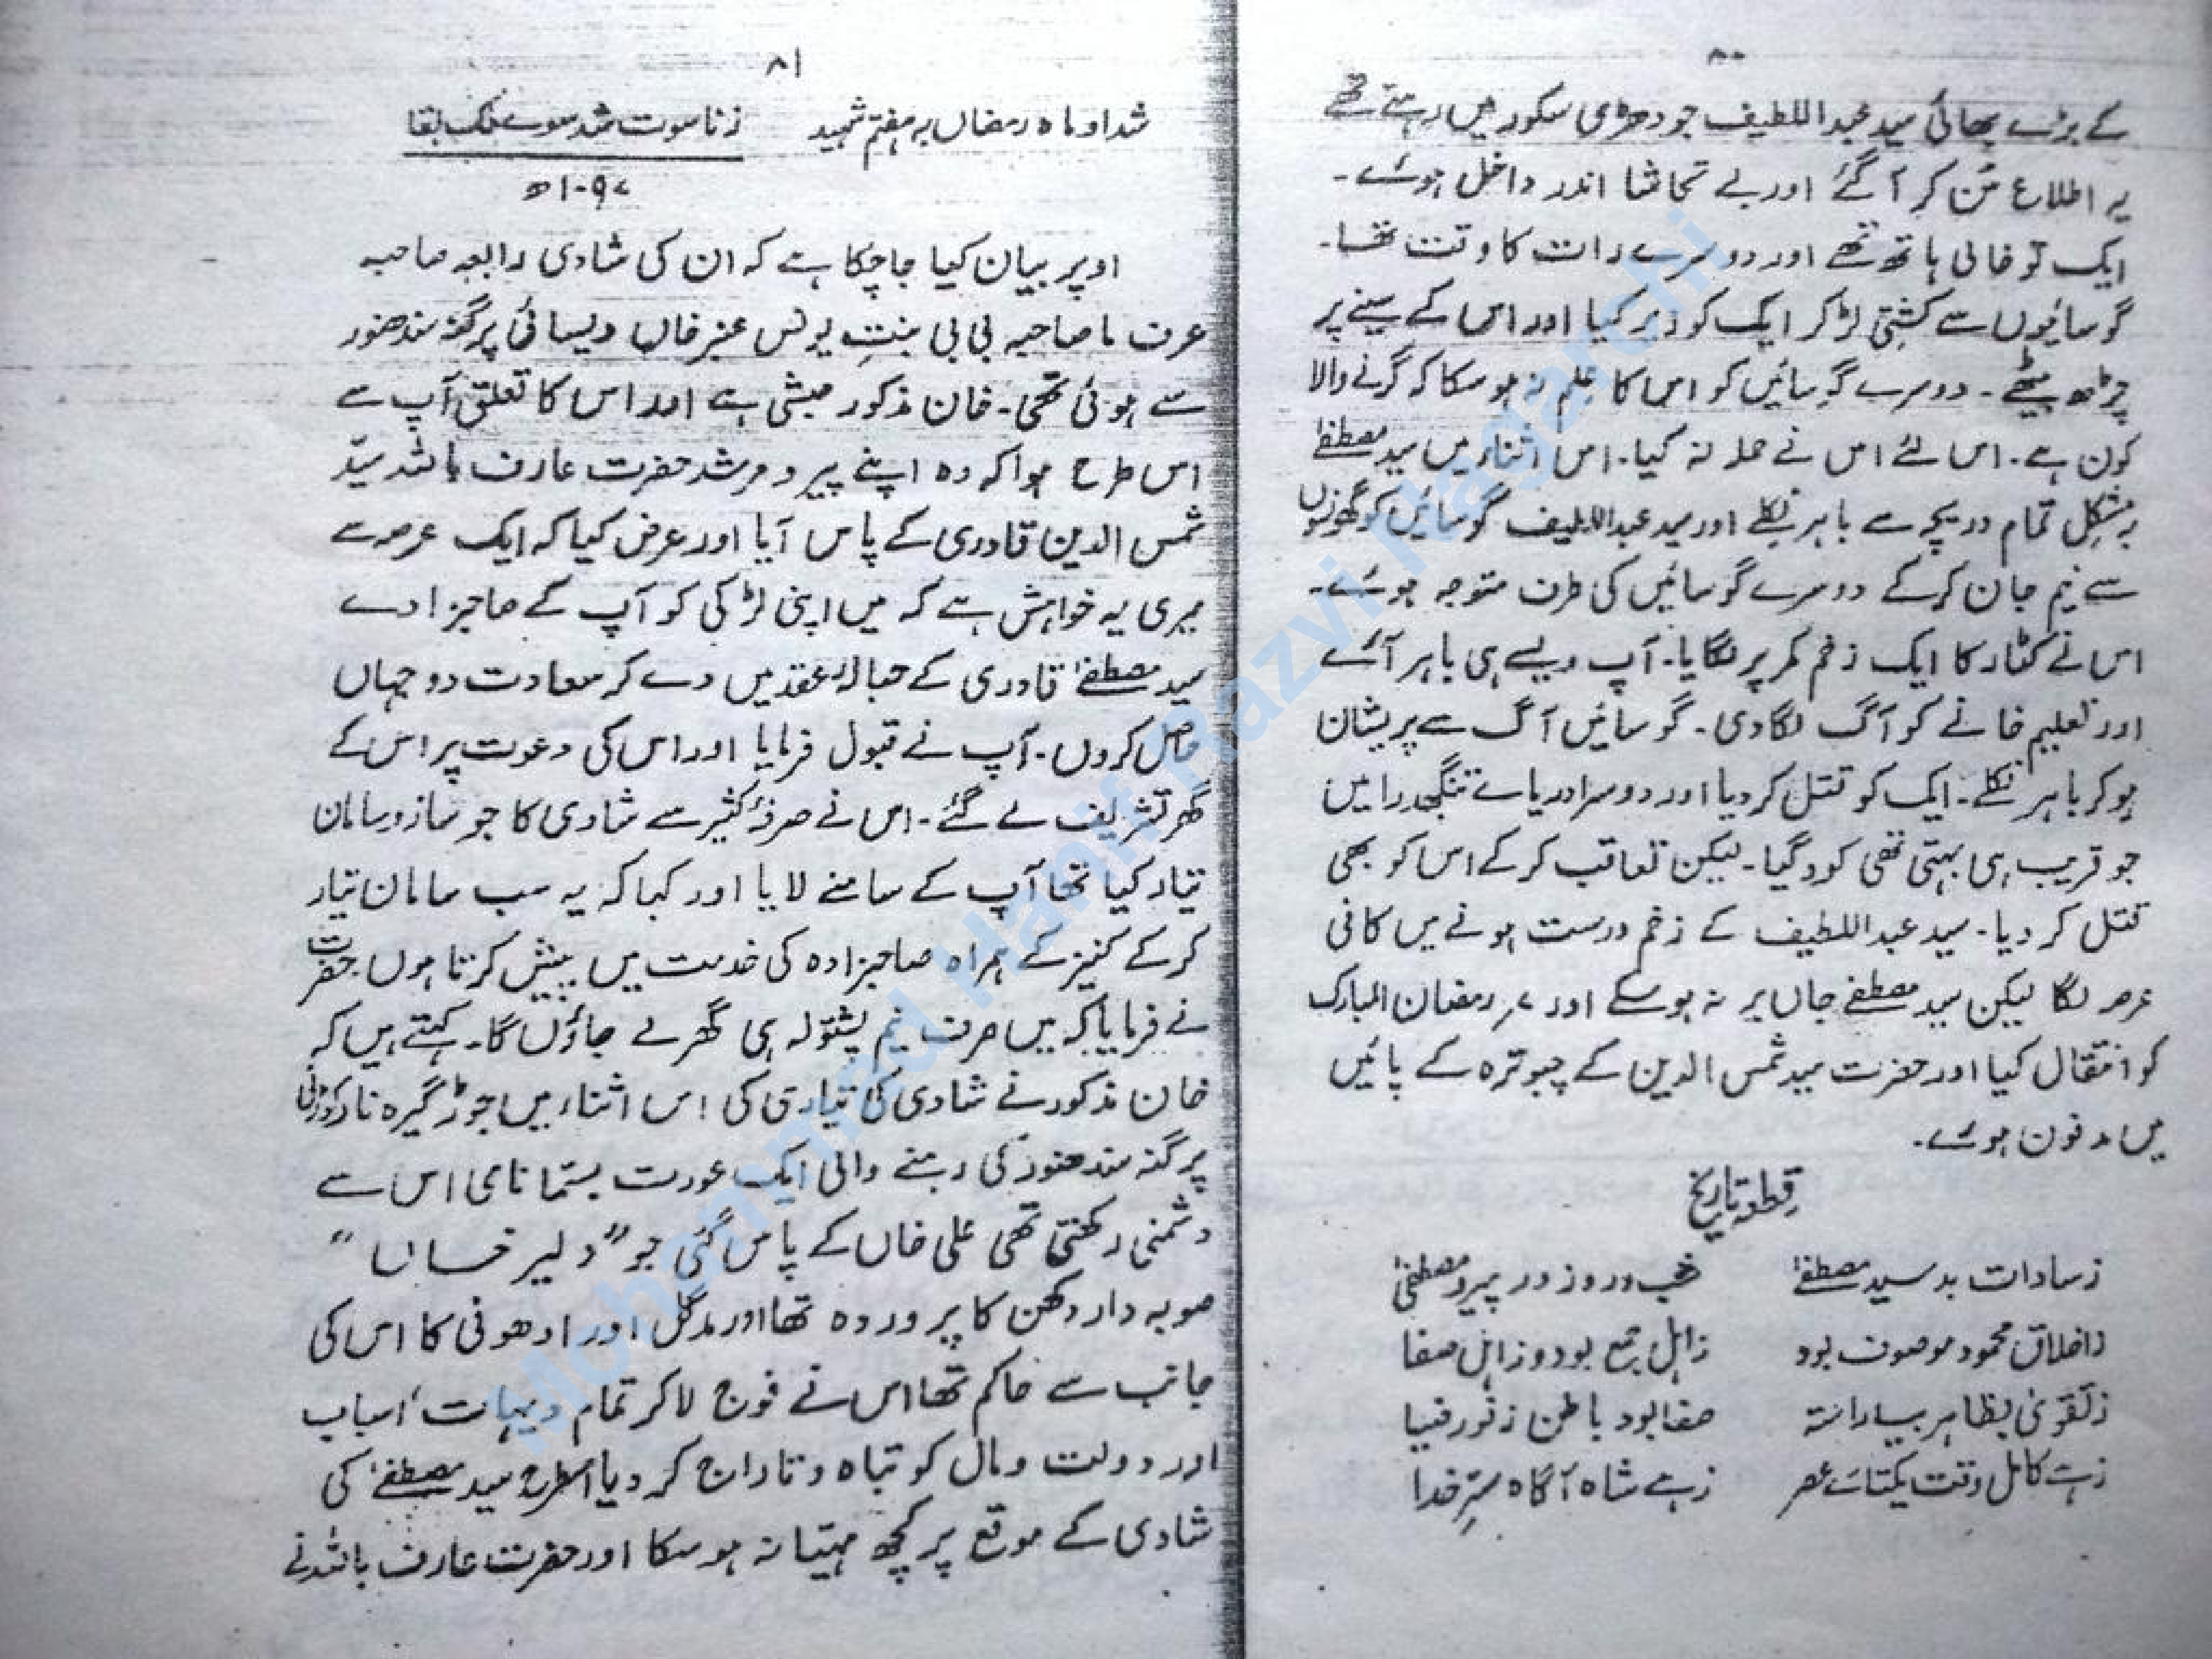 ۸۰
کے بڑے بھائی سید عبداللطیف جو دھڑی سکور میں رہتے تھے
یہ اطلاع سُن کر آگئے اور بے تحاشا اندر داخل ہوئے۔
ایک تو خالی ہاتھ تھے اور دوسرے رات کا وقت تھا۔
گوسائیوں سے کشتی لڑ کر ایک کو زیر کیا اور اس کے سینے پر
چڑھ بیٹھے۔ دوسرے گوسائیں کو اس کا علم نہ ہو سکا کہ گرنے والا
کون ہے۔ اس لئے اس نے حملہ نہ کیا۔ اس اثناء میں سید مصطفےٰ
بہ مشکل تمام دریچہ سے باہر نکلے اور سید عبداللطیف گوسائیں کو گھونسوں
سے نیم جان کرکے دوسرے گوسائیں کی طرف متوجہ ہوئے۔
اس نے کٹار کا ایک زخم کمر پر لگایا۔ آپ ویسے ہی باہر آئے
اور تعلیم خانے کو آگ لگا دی۔ گوسائیں آگ سے پریشان
ہوکر باہر نکلے۔ ایک کو قتل کر دیا اور دوسرا دریائے تنگبھدرا میں
جو قریب ہی بہتی تھی کود گیا۔ لیکن تعاقب کرکے اس کو بھی
قتل کر دیا۔ سید عبداللطیف کے زخم درست ہونے میں کافی
عرصہ لگا لیکن سید مصطفےٰ جاں بر نہ ہو سکے اور ۷؍ رمضان المبارک
کو انتقال کیا اور حضرت سید شمس الدین کے چبوترہ کے پائیں
میں مدفون ہوئے۔
قطعہ تاریخ
زسادات بد سید مصطفےٰ شب و روز در پیرو مصطفےٰ
زاخلاق محمود موصوف بود زاہل جمع بود و زاہل صفا
زتقویٰ بظاہر بیاراستہ صفا بود باطن زنور ضیا
زہے کامل وقت یکتائے عصر زہے شاہ آگاہ سرِّ خدا
۸۱
شد او ماہ رمضاں بہ ہفتم شہید زناسوت شد سوئے ملک بقا
۱۰۹۷ھ
اوپر بیان کیا جاچکا ہے کہ ان کی شادی رابعہ صاحبہ
عرف ماصاحبہ بی بی بنتِ یونس عنبر خاں دیسائی پرگنہ سندھنور
سے ہوئی تھی۔ خان مذکور حبشی ہے اور اس کا تعلق آپ سے
اس طرح ہوا کہ وہ اپنے پیر و مرشد حضرت عارف باللہ سیّد
شمس الدین قادری کے پاس آیا اور عرض کیا کہ ایک عرصہ سے
میری یہ خواہش ہے کہ میں اپنی لڑکی کو آپ کے صاحبزادے
سید مصطفےٰ قادری کے حبالۂ عقد میں دے کر سعادت دوجہاں
حاصل کروں۔ آپ نے قبول فرمایا اور اس کی دعوت پر اس کے
گھر تشریف لے گئے۔ اس نے صرفۂ کثیر سے شادی کا جو ساز و سامان
تیار کیا تھا آپ کے سامنے لایا اور کہا کہ یہ سب سامان تیار
کرکے کنیز کے ہمراہ صاحبزادہ کی خدمت میں پیش کرتا ہوں حضرت
نے فرمایا کہ میں صرف نیم پشتولہ ہی گھر لے جاؤں گا۔ کہتے ہیں کہ
خان مذکور نے شادی کی تیاری کی اس اثناء میں جوڑ گیرہ نارکوڑنی
پرگنہ سندھنور کی رہنے والی ایک عورت بستما نامی اس سے
دشمنی رکھتی تھی علی خاں کے پاس گئی جو "دلیر خساں"
صوبہ دار دکھن کا پروردہ تھا اور مدگل اور ادھونی کا اس کی
جانب سے حاکم تھا اس نے فوج لاکر تمام دیہات، اسباب
اور دولت و مال کو تباہ و تاراج کر دیا اسطرح سید مصطفےٰ کی
شادی کے موقع پر کچھ مہیّا نہ ہوسکا اور حضرت عارف باللہ نے
Mohammed Hanif Razvi Nagarchi